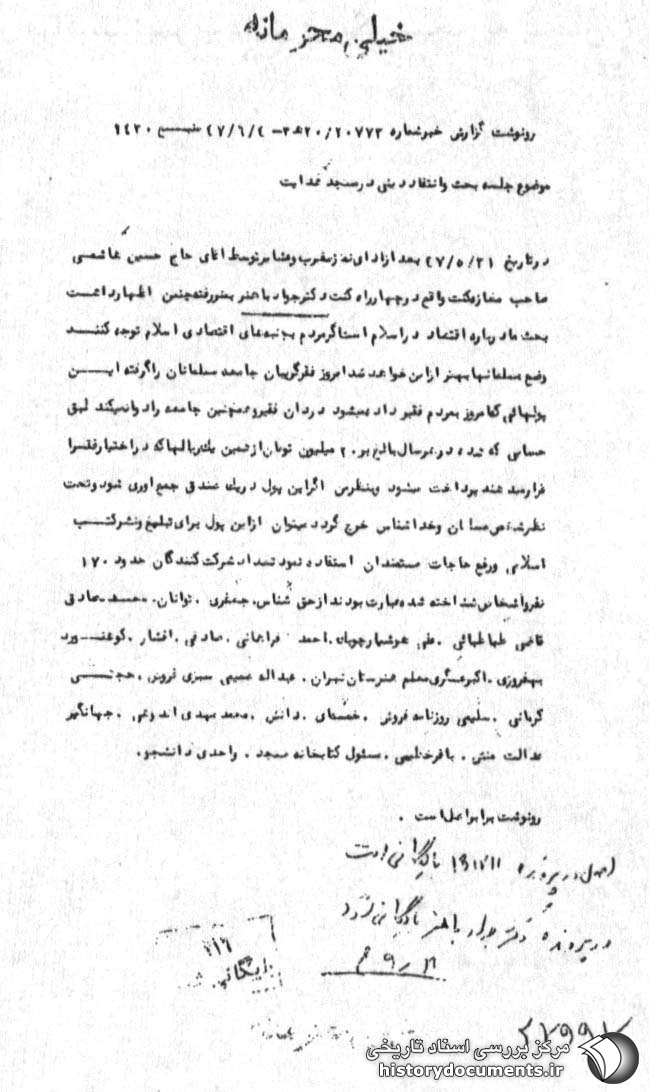 خیلی محرمانه
رونوشت گزارش خبر شماره ۲۰/۲۰۷۷۳ ه‍۳ - ۴۷/۶/۴ منبع ۱۴۳۰
موضوع جلسه بحث و انتقاد دینی در مسجد هدایت
در تاریخ ۴۷/۵/۳۱ بعد از ادای نماز مغرب و عشا بر توسط آقای حاج حسین
صاحب مغازه کت واقع در چهارراه کنت دکتر جواد باهنر بمنبر رفته چنین اظهار داشت
بحث ما درباره اقتصاد در اسلام است اگر مردم بجنبه‌های اقتصادی اسلام توجه کنند
وضع مسلمانها بهتر از این خواهد شد امروز فقر گریبان جامعه مسلمانان را گرفته این
پولهائی که امروز بمردم فقیر داده میشود دردان فقیر و همچنین جامعه را دوا نمیکند طبق
حسابی که شده در هر سال بالغ بر ۲۰ میلیون تومان از همین ریالها که در اختیار فقرا
قرار میدهند پرداخت میشود و بنظر من اگر این پول در یک صندوق جمع‌آوری شود و تحت
نظر شخص مسلمان و خداشناس خرج گردد میتوان از این پول برای تبلیغ و نشر کتب
اسلامی و رفع حاجات مستمندان استفاده نمود تعداد شرکت کنندگان حدود ۱۷۰
نفر و اشخاص شناخته شده عبارت بودند از حق شناس. جعفری. توانان. محمد صادقی
قاضی طباطبائی. علی هوشیار چوبک. احمد فراهانی. صادقی. افشار.
بهفروزی. اکبر عسگری معلم هنرستان تهران. عبداله سبزی فروش. حجتی
کرمانی. سلیمی روزنامه فروش. دانش. محمد مهدی. جهانگیر
عدالت منش. باقر خطیبی. مسئول کتابخانه مسجد. واحدی دانشجو.
رونوشت برابر اصل است.
اصل در پرونده ۱۳۱۷۱۱ بایگانی است
در پرونده دکتر جواد باهنر بایگانی شود
بایگانی
مرکز بررسی اسناد تاریخی
historydocuments.ir